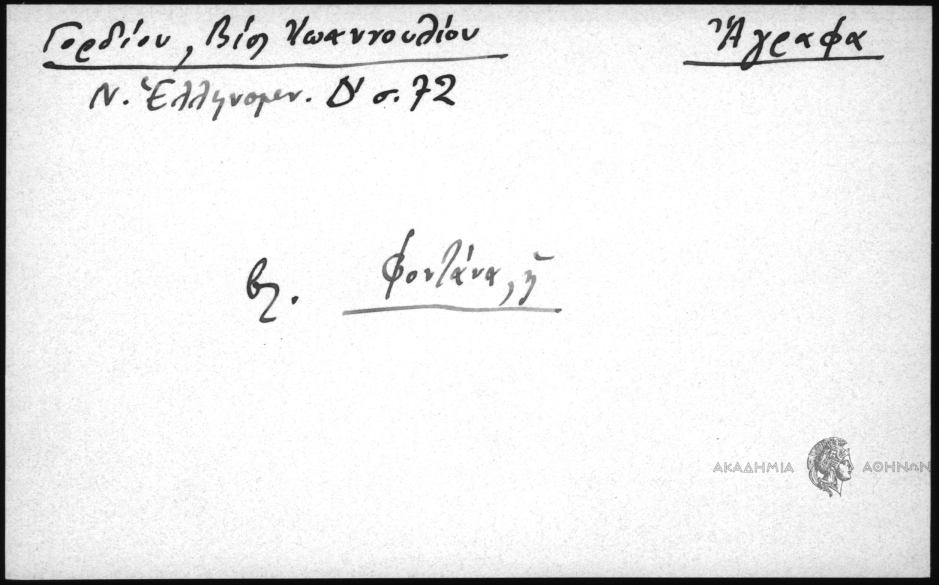 Γορδίου, Βίος Ἰωαννουλίου
Ἄγραφα
Ν. Ἑλληνομν. Δ' σ. 72
βλ. Φοντάνα, ἡ
ΑΚΑΔΗΜΙΑ ΑΘΗΝΩΝ